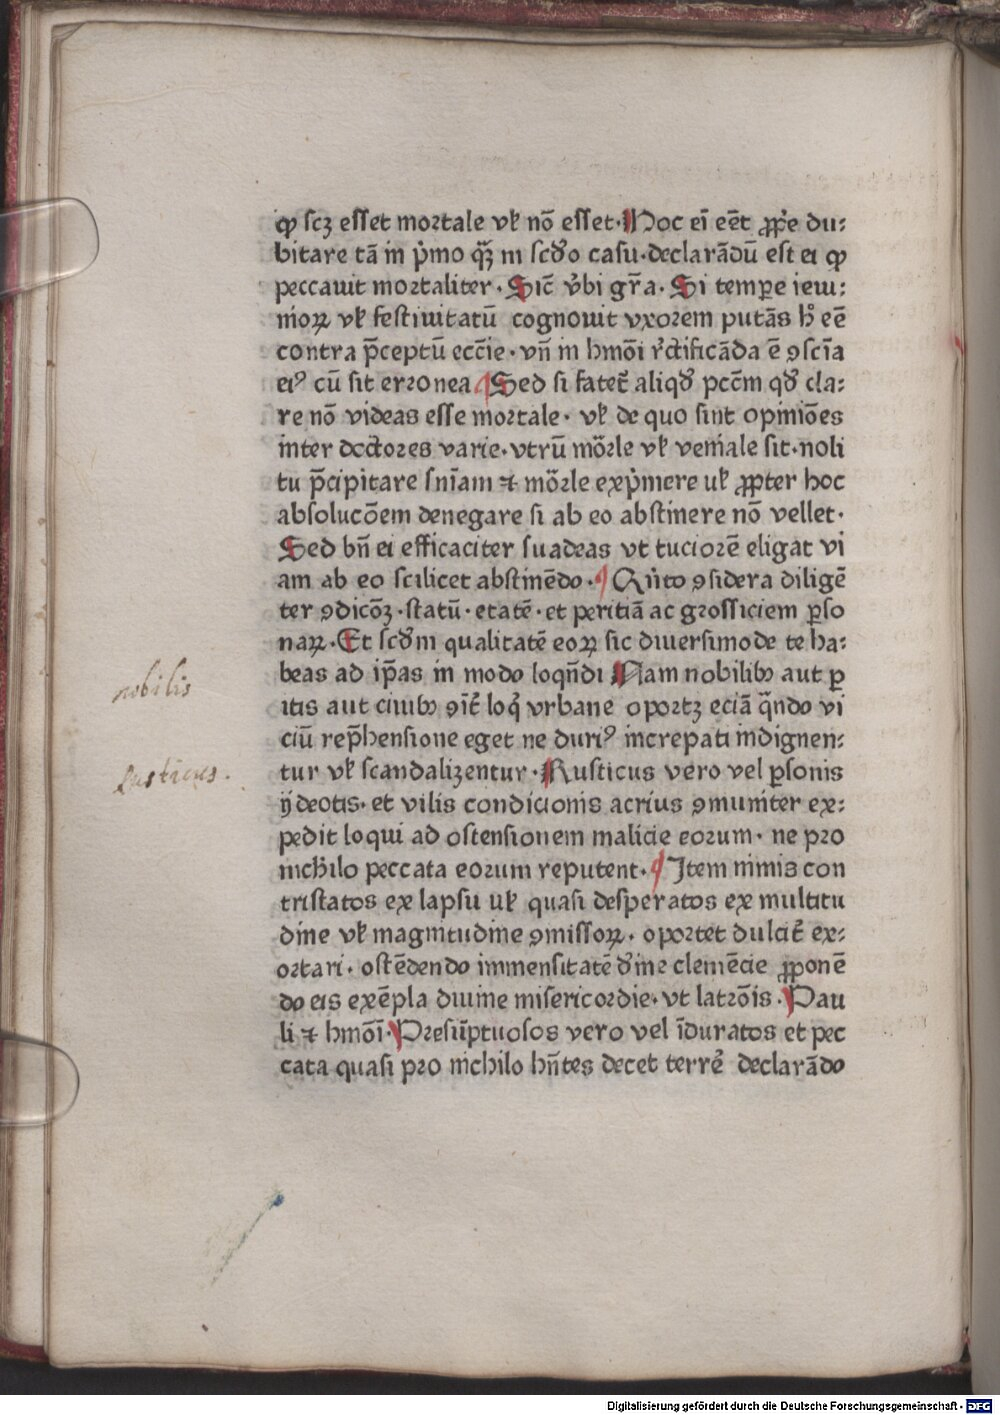 ꝙ scꝫ esset mortale vł nō esset· Hoc eī eēt ꝓp̄e du⸗
bitare tā in p̍mo q̄ꝫ in scd̄o casu· declarādū est ei ꝙ
peccauit mortaliter· Sic̄ v̍bi gr̄a· Si tempe ieiu⸗
nioꝝ vł festiuitatū cognouit vxorem putās h̄ eē
contra p̄ceptū ecc̄ie· vn̄ in hmōi rc̄tificāda ē ꝯscīa
eiꝰ cū sit erronea ¶ Sed si fatet̄ aliqd̄ pcc̄m qd̄ cla⸗
re nō videas esse mortale· vł de quo sint opiniōes
inter doctores varie· vtrū mōrle vł veniale sit· noli
tu p̄cipitare snīam ⁊ mōrle exp̍mere uł ꝓpter hoc
absolucōem denegare si ab eo abstinere nō vellet·
Sed bn̄ ei efficaciter suadeas vt tuciorē eligat vi
am ab eo scilicet abstinēdo· ¶ Qn̍to ꝯsidera diligē
ter ꝯdicōꝫ· statū· etatē· et peritiā ac grossiciem ꝑso
naꝝ· Et scd̄m qualitatē eoꝝ sic diuersimode te ha⸗
beas ad ip̄as in modo loqn̄di Nam nobilibꝰ aut ꝑ
itis aut ciuibꝰ ꝯit̄ loq̍ vrbane oportꝫ eciā q̄ndo vi
ciū rep̄hensione eget ne duriꝰ increpati indignen⸗
tur vł scandalizentur· Rusticus vero vel ꝑsonis
ijdeotis· et vilis condicionis acrius ꝯmuniter ex⸗
pedit loqui ad ostensionem malicie eorum· ne pro
nichilo peccata eorum reputent· ¶ Item nimis con
tristatos ex lapsu uł quasi desperatos ex multitu
dine vł magnitudine ꝯmissoꝝ· oportet dulcit̄ ex⸗
ortari· ostēdendo immensitatē d̄ine clemēcie ꝓponē
do eis exēpla diuine misericordie· vt latrōis· Pau
li ⁊ hmōi· Presūptuosos vero vel īduratos et pec
cata quasi pro nichilo hn̄tes decet terrē declarādo
nobilis
Rusticus.
Digitalisierung gefördert durch die Deutsche Forschungsgemeinschaft - DFG